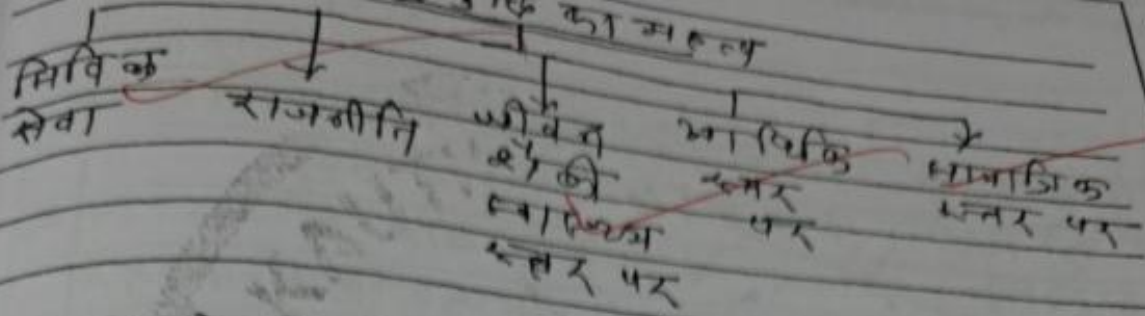 का महत्व
सिविल
सेवा
राजनीति
जीवन
शैली
स्वास्थ्य
स्तर पर
आर्थिक
स्तर
पर
सामाजिक
स्तर पर